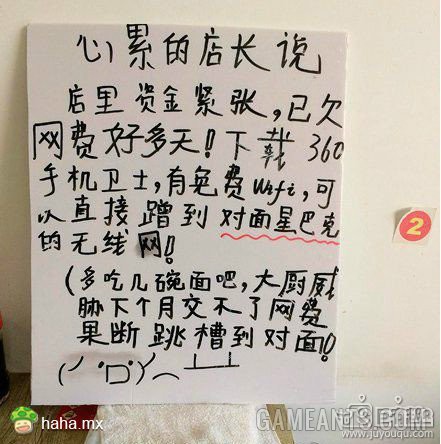 心累的店长说
店里资金紧张,已欠
网费好多天!下载360
手机卫士,有免费Wifi,可
以直接蹭到对面星巴克
的无线网!
(多吃几碗面吧,大厨威
胁下个月交不了网费
果断跳槽到对面!
(╯°□°)╯︵┴┴
2
haha.mx
GAMEANTS.COM
www.juyouqu.com